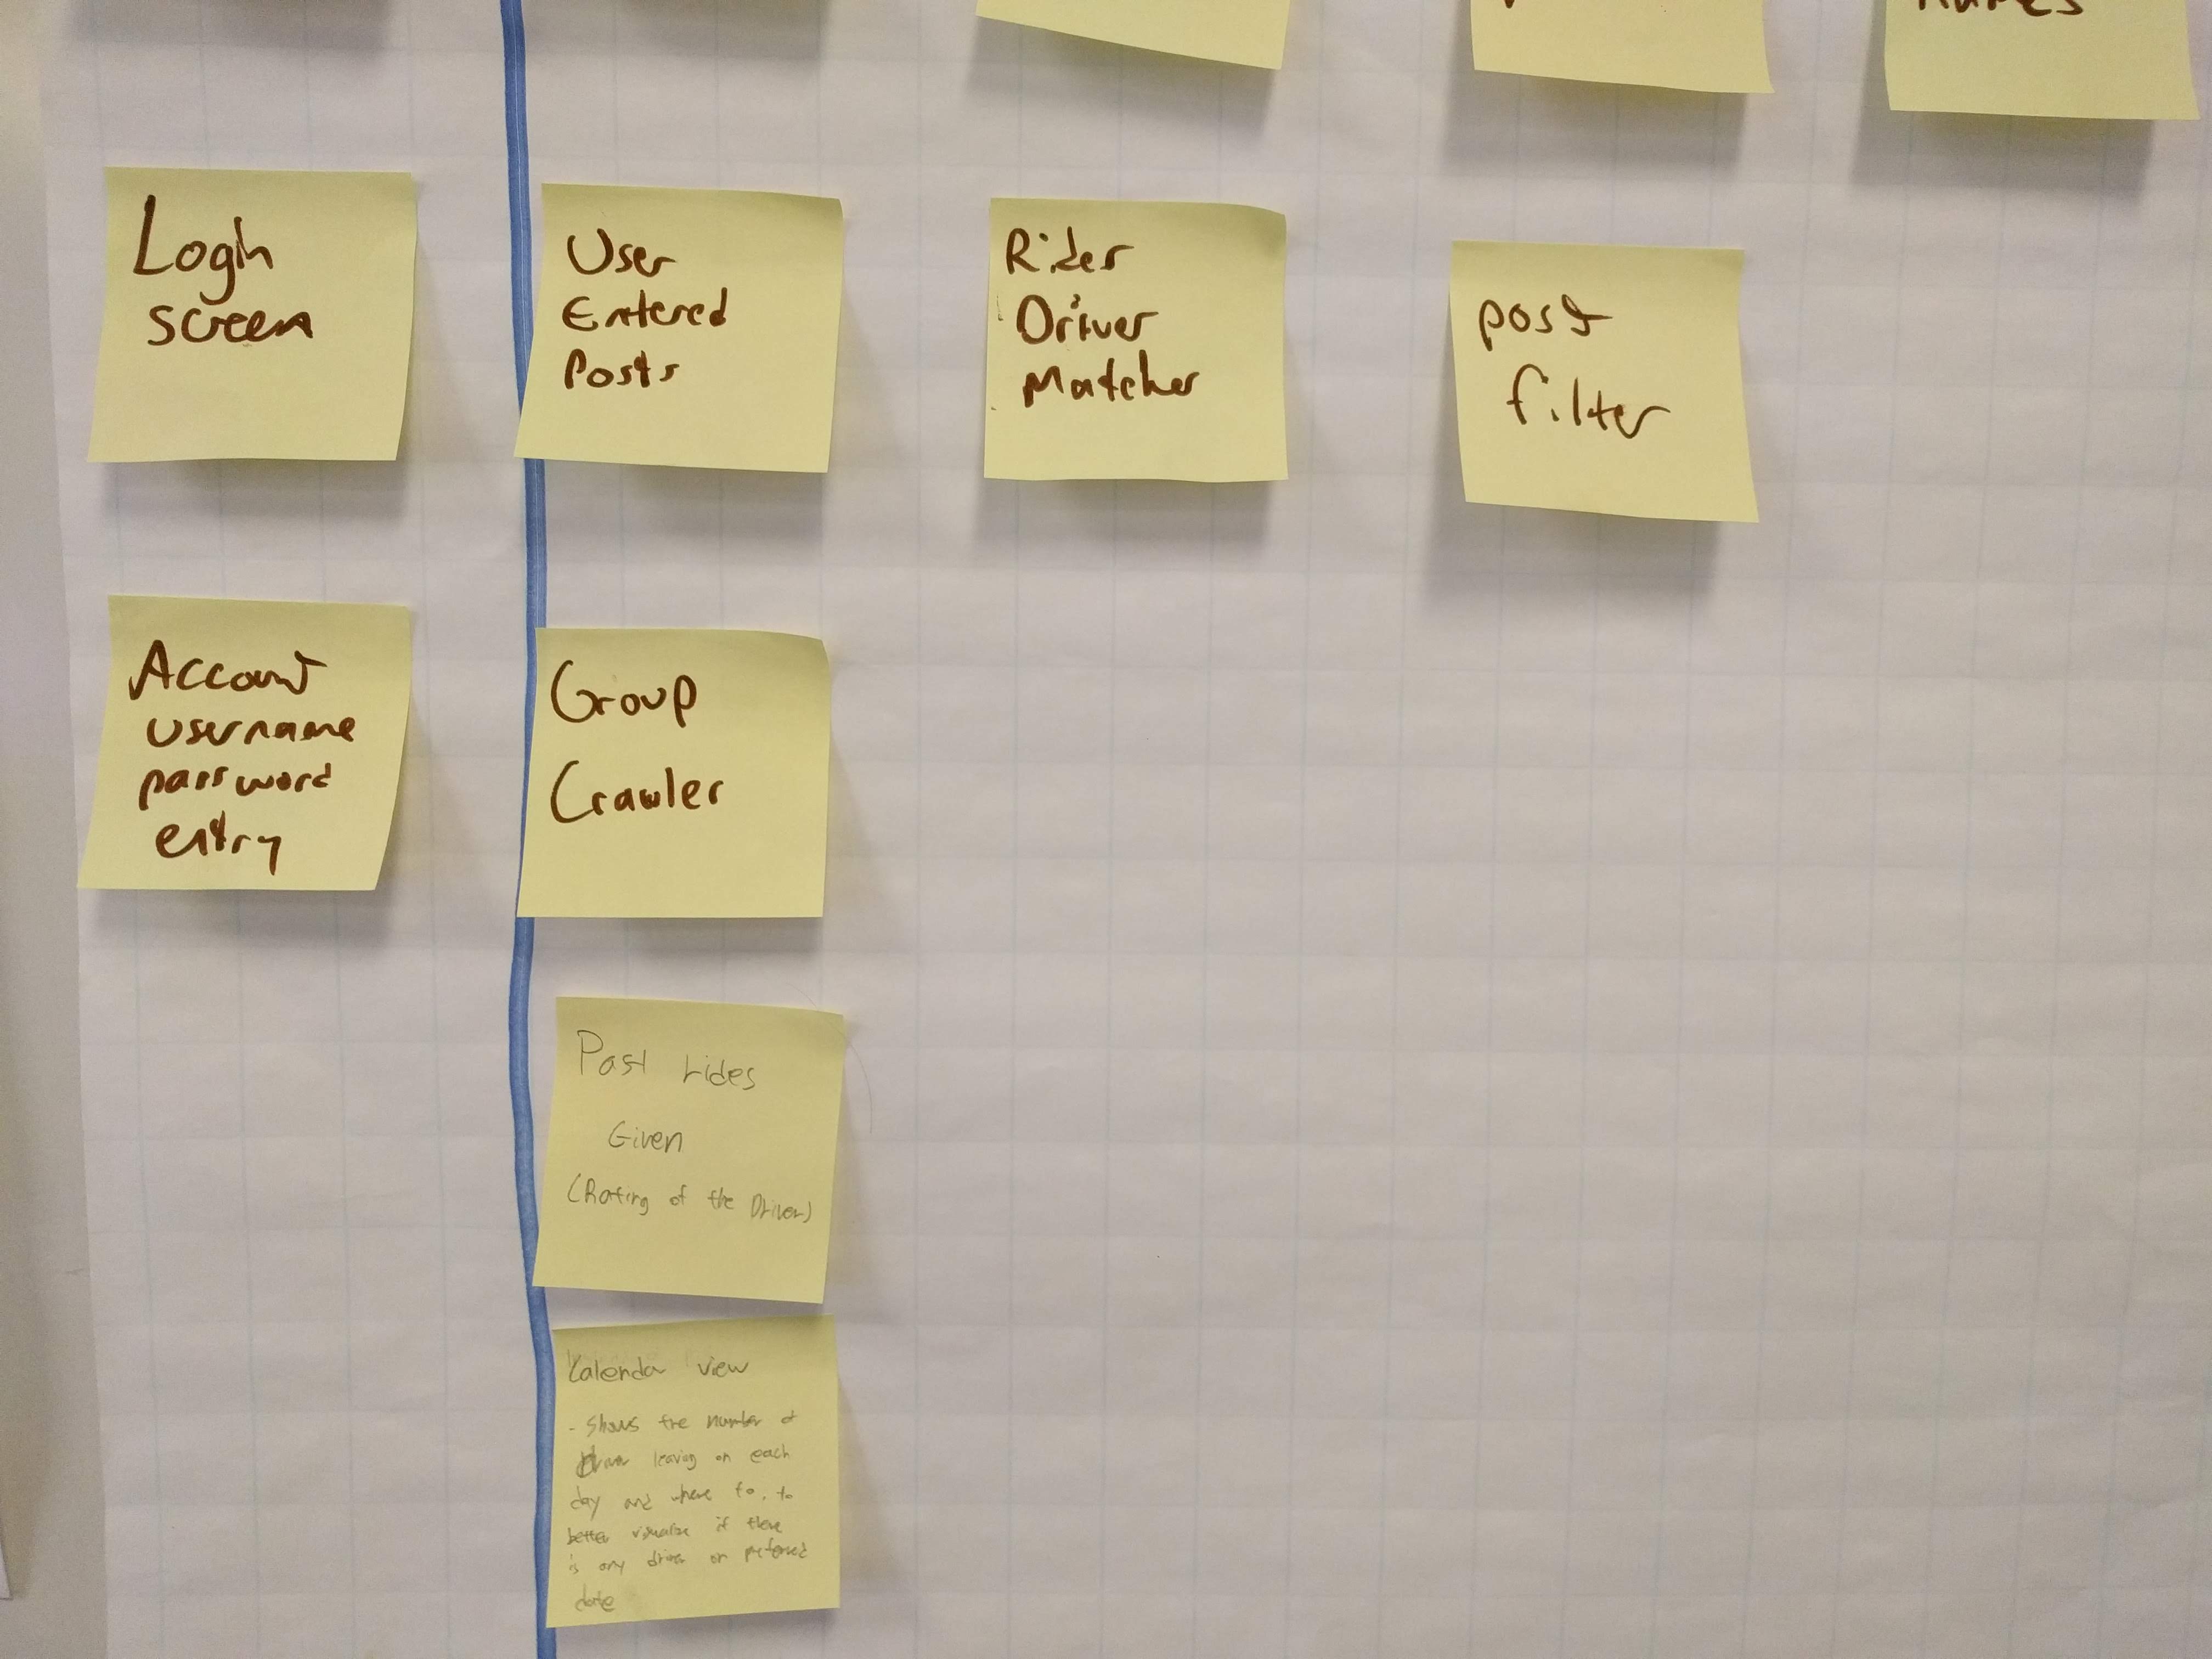 Login
screen
User
Entered
Posts
Rider
Driver
Matcher
post
filter
Account
username
password
entry
Group
Crawler
Past rides
Given
(Rating of the Driver)
Calendar view
- Shows the number of
leaving on each
day and where to, to
better visualize if there
is any driver on preferred
date